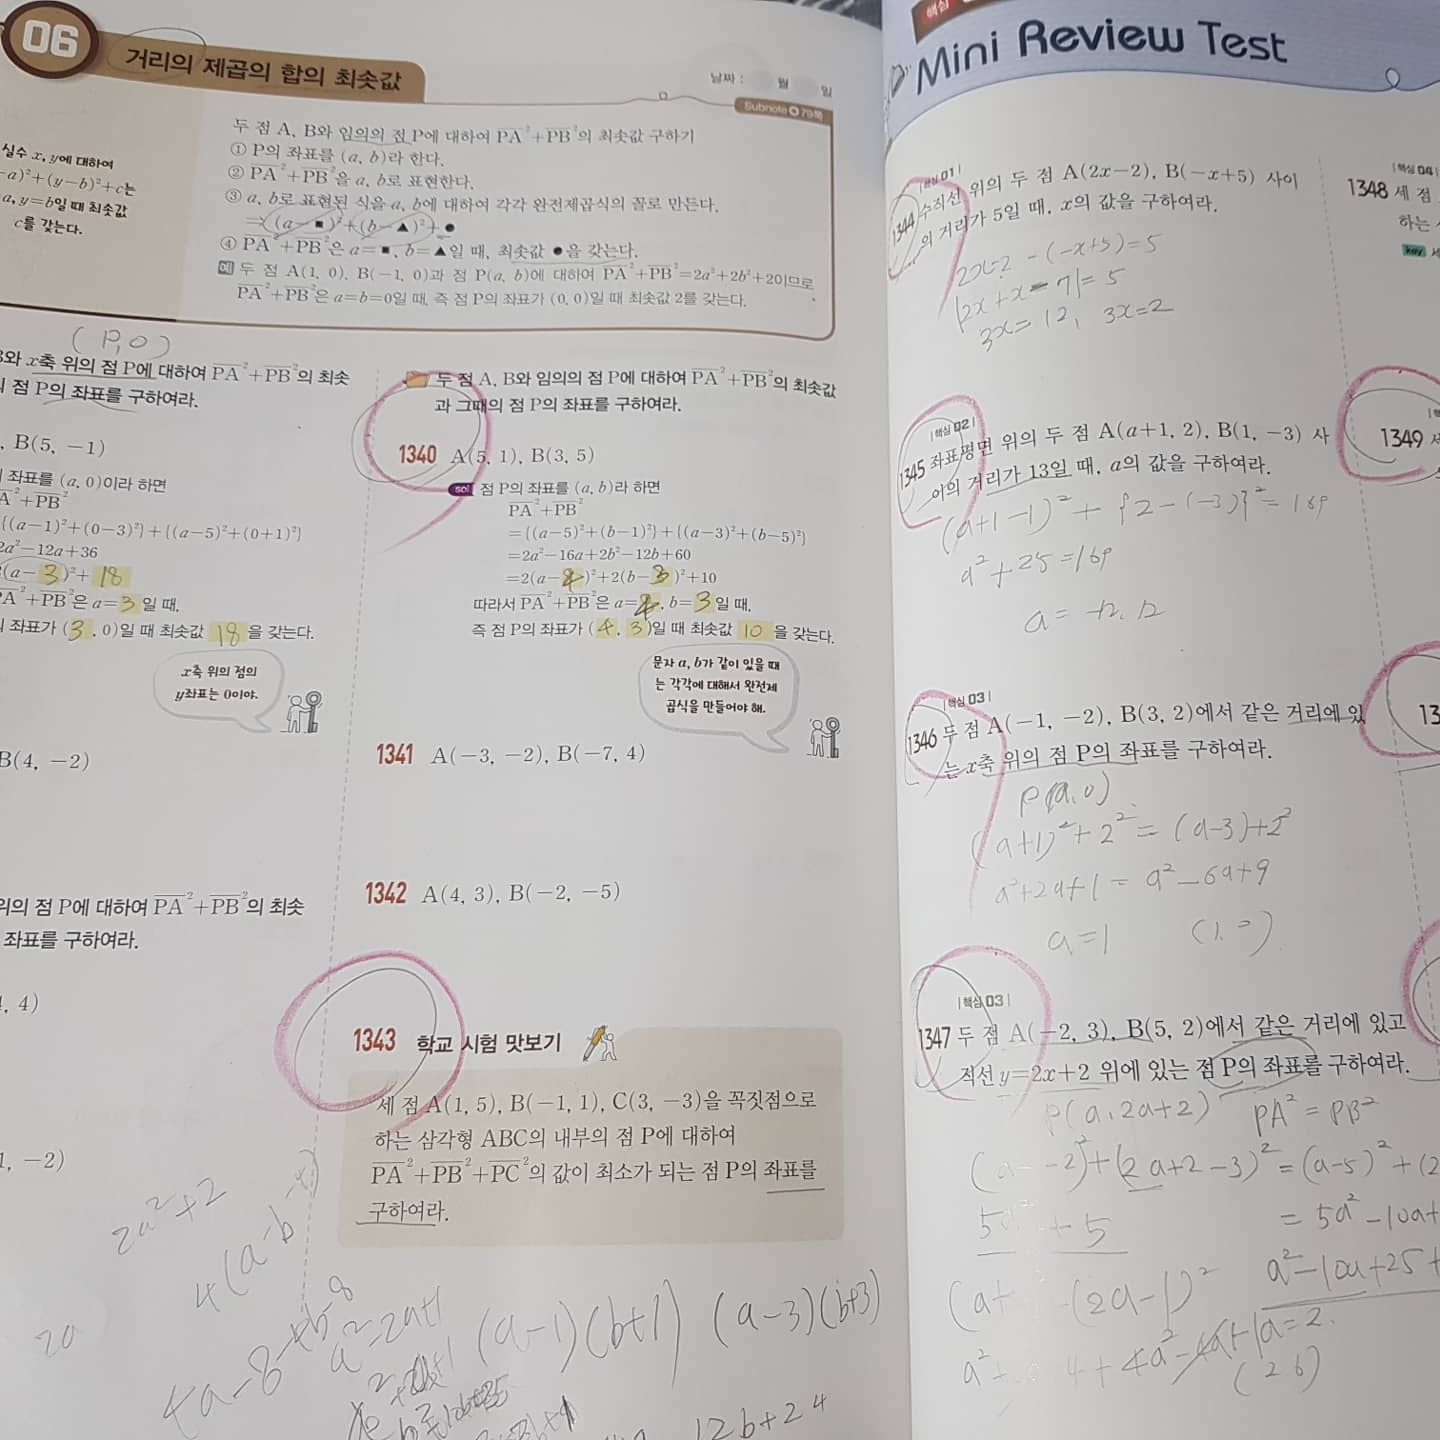 06
거리의 제곱의 합의 최솟값
날짜 : 월 일
Subnote 79쪽
실수 x, y에 대하여
-a)²+(y-b)²+c는
a, y=b일 때 최솟값
c를 갖는다.
두 점 A, B와 임의의 점 P에 대하여 PA²+PB²의 최솟값 구하기
① P의 좌표를 (a, b)라 한다.
② PA²+PB²을 a, b로 표현한다.
③ a, b로 표현된 식을 a, b에 대하여 각각 완전제곱식의 꼴로 만든다.
(a-■)²+(b-▲)²+●
④ PA²+PB²은 a=■, b=▲일 때, 최솟값 ●을 갖는다.
예 두 점 A(1, 0), B(-1, 0)과 점 P(a, b)에 대하여 PA²+PB²=2a²+2b²+2이므로
PA²+PB²은 a=b=0일 때, 즉 점 P의 좌표가 (0, 0)일 때 최솟값 2를 갖는다.
(P, 0)
B와 x축 위의 점 P에 대하여 PA²+PB²의 최솟
점 P의 좌표를 구하여라.
, B(5, -1)
좌표를 (a, 0)이라 하면
A²+PB²
{(a-1)²+(0-3)²}+{(a-5)²+(0+1)²}
2a²-12a+36
(a-3)²+18
PA²+PB²은 a=3일 때,
좌표가 (3, 0)일 때 최솟값 18을 갖는다.
x축 위의 점의
y좌표는 0이야.
B(4, -2)
위의 점 P에 대하여 PA²+PB²의 최솟
좌표를 구하여라.
, 4)
, -2)
2a²+2
두 점 A, B와 임의의 점 P에 대하여 PA²+PB²의 최솟값
과 그때의 점 P의 좌표를 구하여라.
1340 A(5, 1), B(3, 5)
sol 점 P의 좌표를 (a, b)라 하면
PA²+PB²
={(a-5)²+(b-1)²}+{(a-3)²+(b-5)²}
=2a²-16a+2b²-12b+60
=2(a-4)²+2(b-3)²+10
따라서 PA²+PB²은 a=4, b=3일 때,
즉 점 P의 좌표가 (4, 3)일 때 최솟값 10을 갖는다.
문자 a, b가 같이 있을 때
는 각각에 대해서 완전제
곱식을 만들어야 해.
1341 A(-3, -2), B(-7, 4)
1342 A(4, 3), B(-2, -5)
1343 학교 시험 맛보기
세 점 A(1, 5), B(-1, 1), C(3, -3)을 꼭짓점으로
하는 삼각형 ABC의 내부의 점 P에 대하여
PA²+PB²+PC²의 값이 최소가 되는 점 P의 좌표를
구하여라.
a²-2a+1
(a-1)(b+1) (a-3)(b+3)
12b+24
핵심
Mini Review Test
|핵심 01|
1344 수직선 위의 두 점 A(2x-2), B(-x+5) 사이
의 거리가 5일 때, x의 값을 구하여라.
2x-2-(-x+5)=5
|2x+x-7|=5
3x=12, 3x=2
|핵심 02|
1345 좌표평면 위의 두 점 A(a+1, 2), B(1, -3) 사
이의 거리가 13일 때, a의 값을 구하여라.
(a+1-1)²+{2-(-3)}²=169
a²+25=169
a=-12, 12
|핵심 03|
1346 두 점 A(-1, -2), B(3, 2)에서 같은 거리에 있
는 x축 위의 점 P의 좌표를 구하여라.
P(a, 0)
(a+1)²+2²=(a-3)+2²
a²+2a+1=a²-6a+9
a=1 (1, 0)
|핵심 03|
1347 두 점 A(-2, 3), B(5, 2)에서 같은 거리에 있고
직선 y=2x+2 위에 있는 점 P의 좌표를 구하여라.
P(a, 2a+2) PA²=PB²
(a--2)²+(2a+2-3)²=(a-5)²+(2
=5a²-10a+
a²-10a+25+
(2a-1)²
a=2.
(2 6)
|핵심 04|
1348 세 점
하는
key 세
1349 세
13